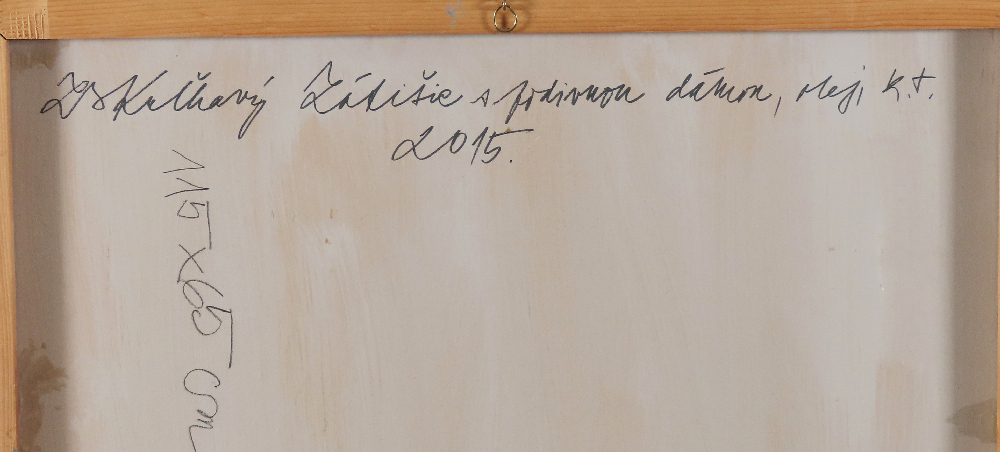 Krlhavý Zátišie s podivnou dámou, olej, k.t.
2015.
115 x 65 cm